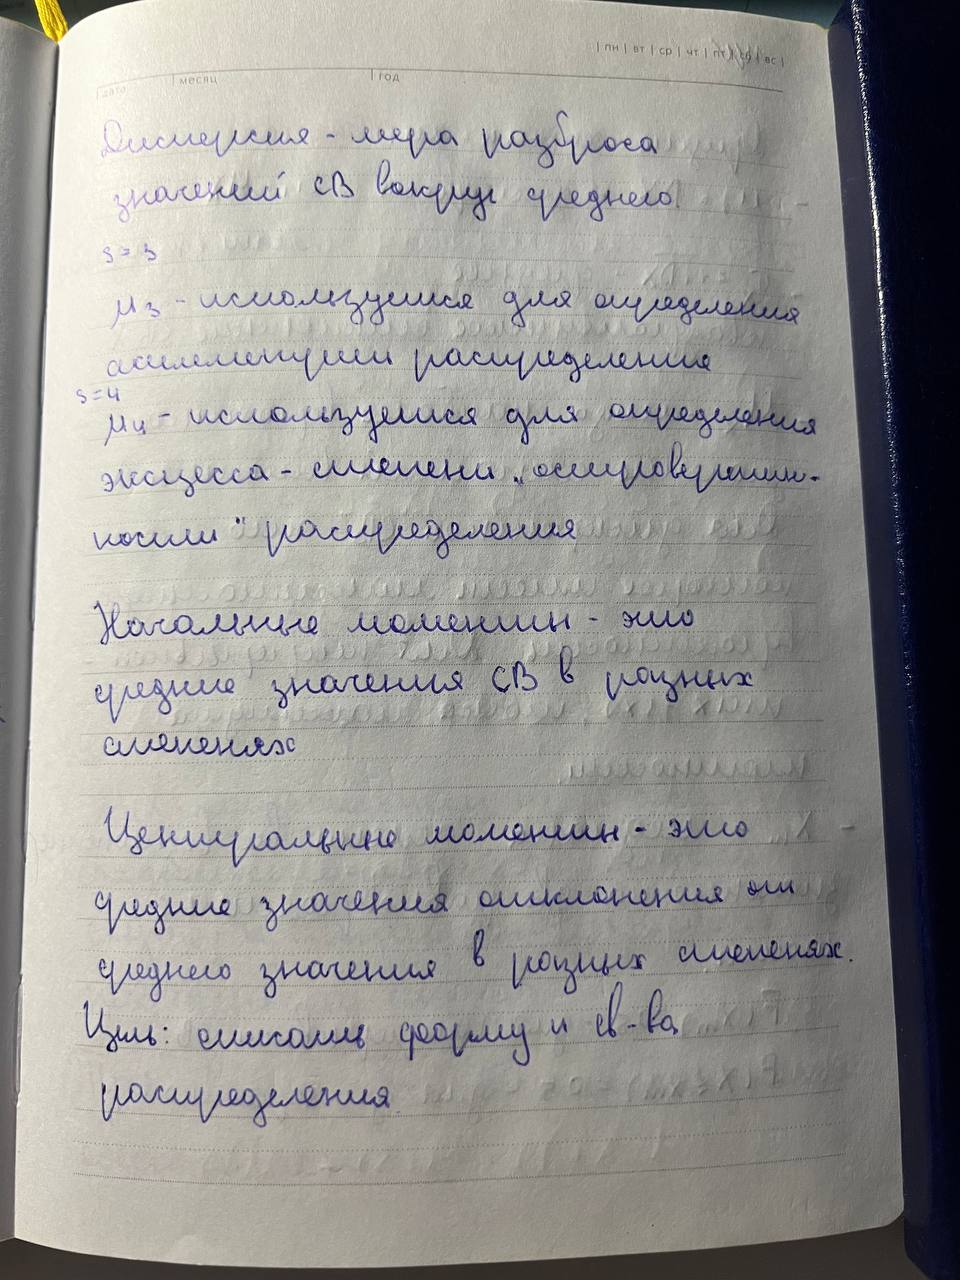 | пн | вт | ср | чт | пт | сб | вс |
дата | месяц | год
Дисперсия - мера разброса
значений СВ вокруг среднего.
s = 3
μ₃ - используется для определения
асимметрии распределения
s=4
μ₄ - используется для определения
эксцесса - степени „островершин-
ности" распределения
Начальные моменты - это
средние значения СВ в разных
степенях
Центральные моменты - это
средние значения отклонения от
среднего значения в разных степенях.
Цель: описать форму и св-ва
распределения